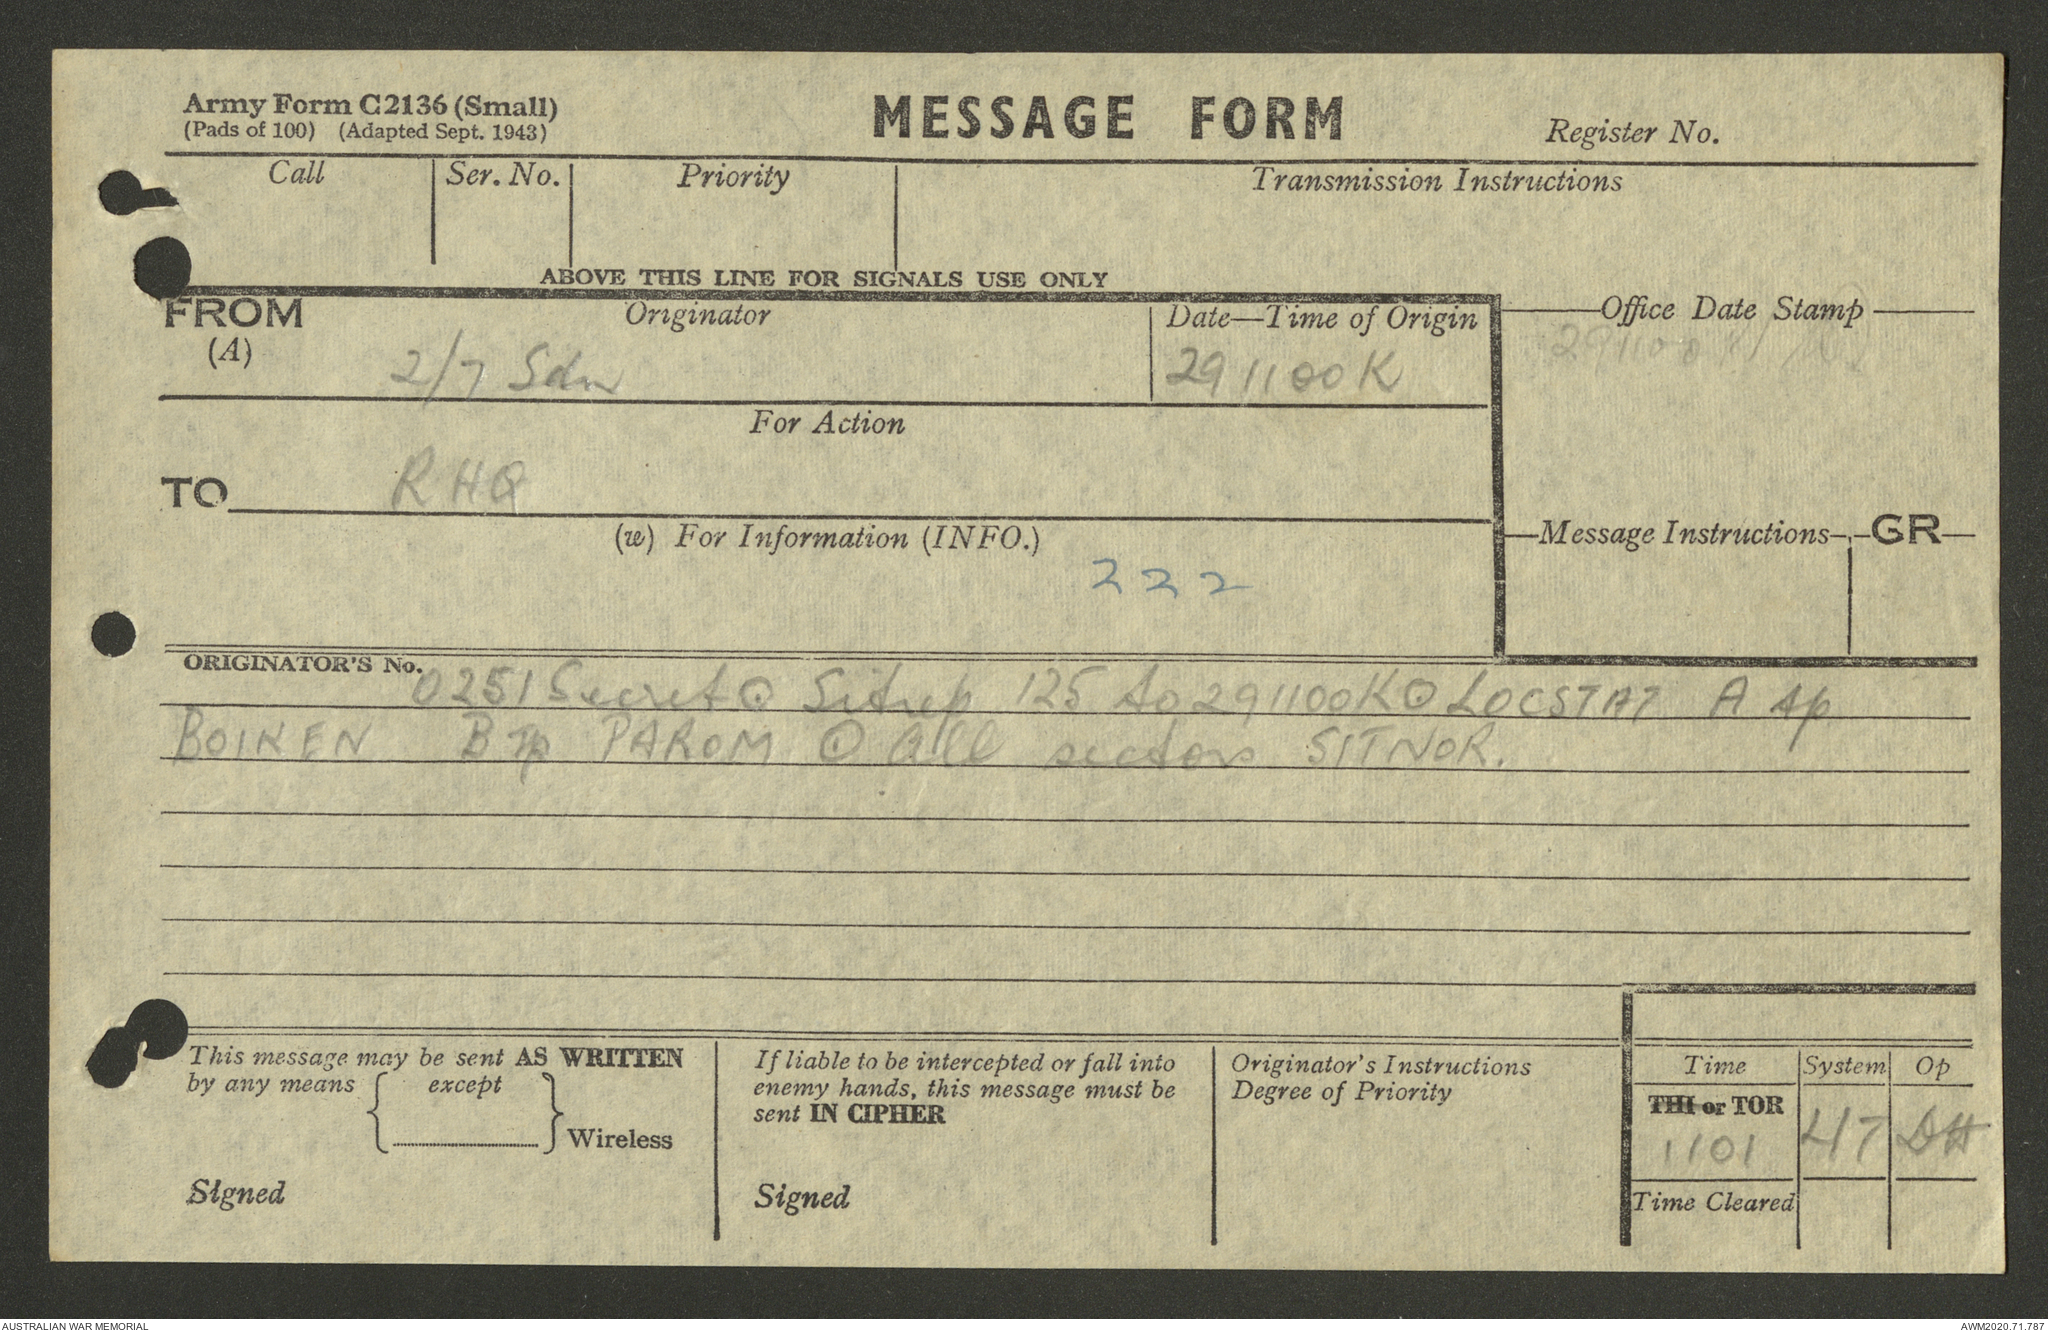 Army Form C2136 (Small)
(Pads of 100) (Adapted Sept. 1943)
MESSAGE FORM
Register No.
Call Ser. No. Priority Transmission Instructions
ABOVE THIS LINE FOR SIGNALS USE ONLY
FROM Originator Date—Time of Origin Office Date Stamp
(A) 2/7 Sdn 291100K 291100K
For Action
TO RHQ
(w) For Information (INFO.) Message Instructions GR
222
ORIGINATOR'S No. 0251 Secret ⊙ Sitrep 125 to 291100K ⊙ LOCSTAT A tp
BOIKEN B Tp PAROM ⊙ All sectors SITNOR.
This message may be sent AS WRITTEN
by any means { except } Wireless
Signed
If liable to be intercepted or fall into
enemy hands, this message must be
sent IN CIPHER
Signed
Originator's Instructions
Degree of Priority
Time System Op
THI or TOR
1101 47 DH
Time Cleared
AUSTRALIAN WAR MEMORIAL
AWM2020.71.787